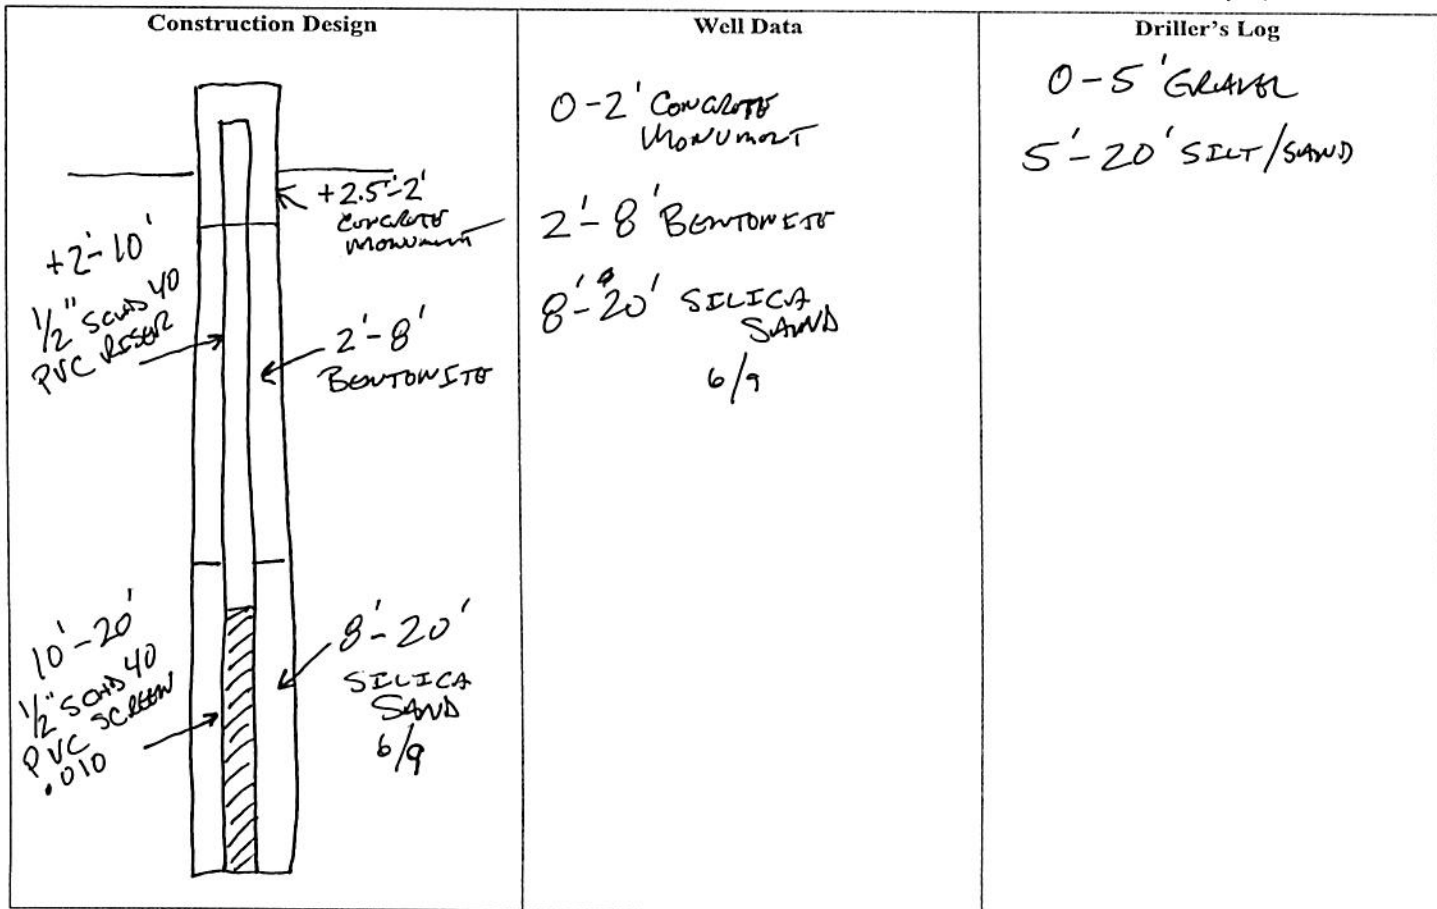 Construction Design
+2.5'-2'
CONCRETE
MONUMENT
+2'-10'
1/2" SCHD 40
PVC RISER
2'-8'
BENTONITE
10'-20'
1/2" SCHD 40
PVC SCREEN
.010
8'-20'
SILICA
SAND
6/9
Well Data
0-2' CONCRETE
MONUMENT
2'-8' BENTONITE
8'-20' SILICA
SAND
6/9
Driller's Log
0-5' GRAVEL
5'-20' SILT/SAND